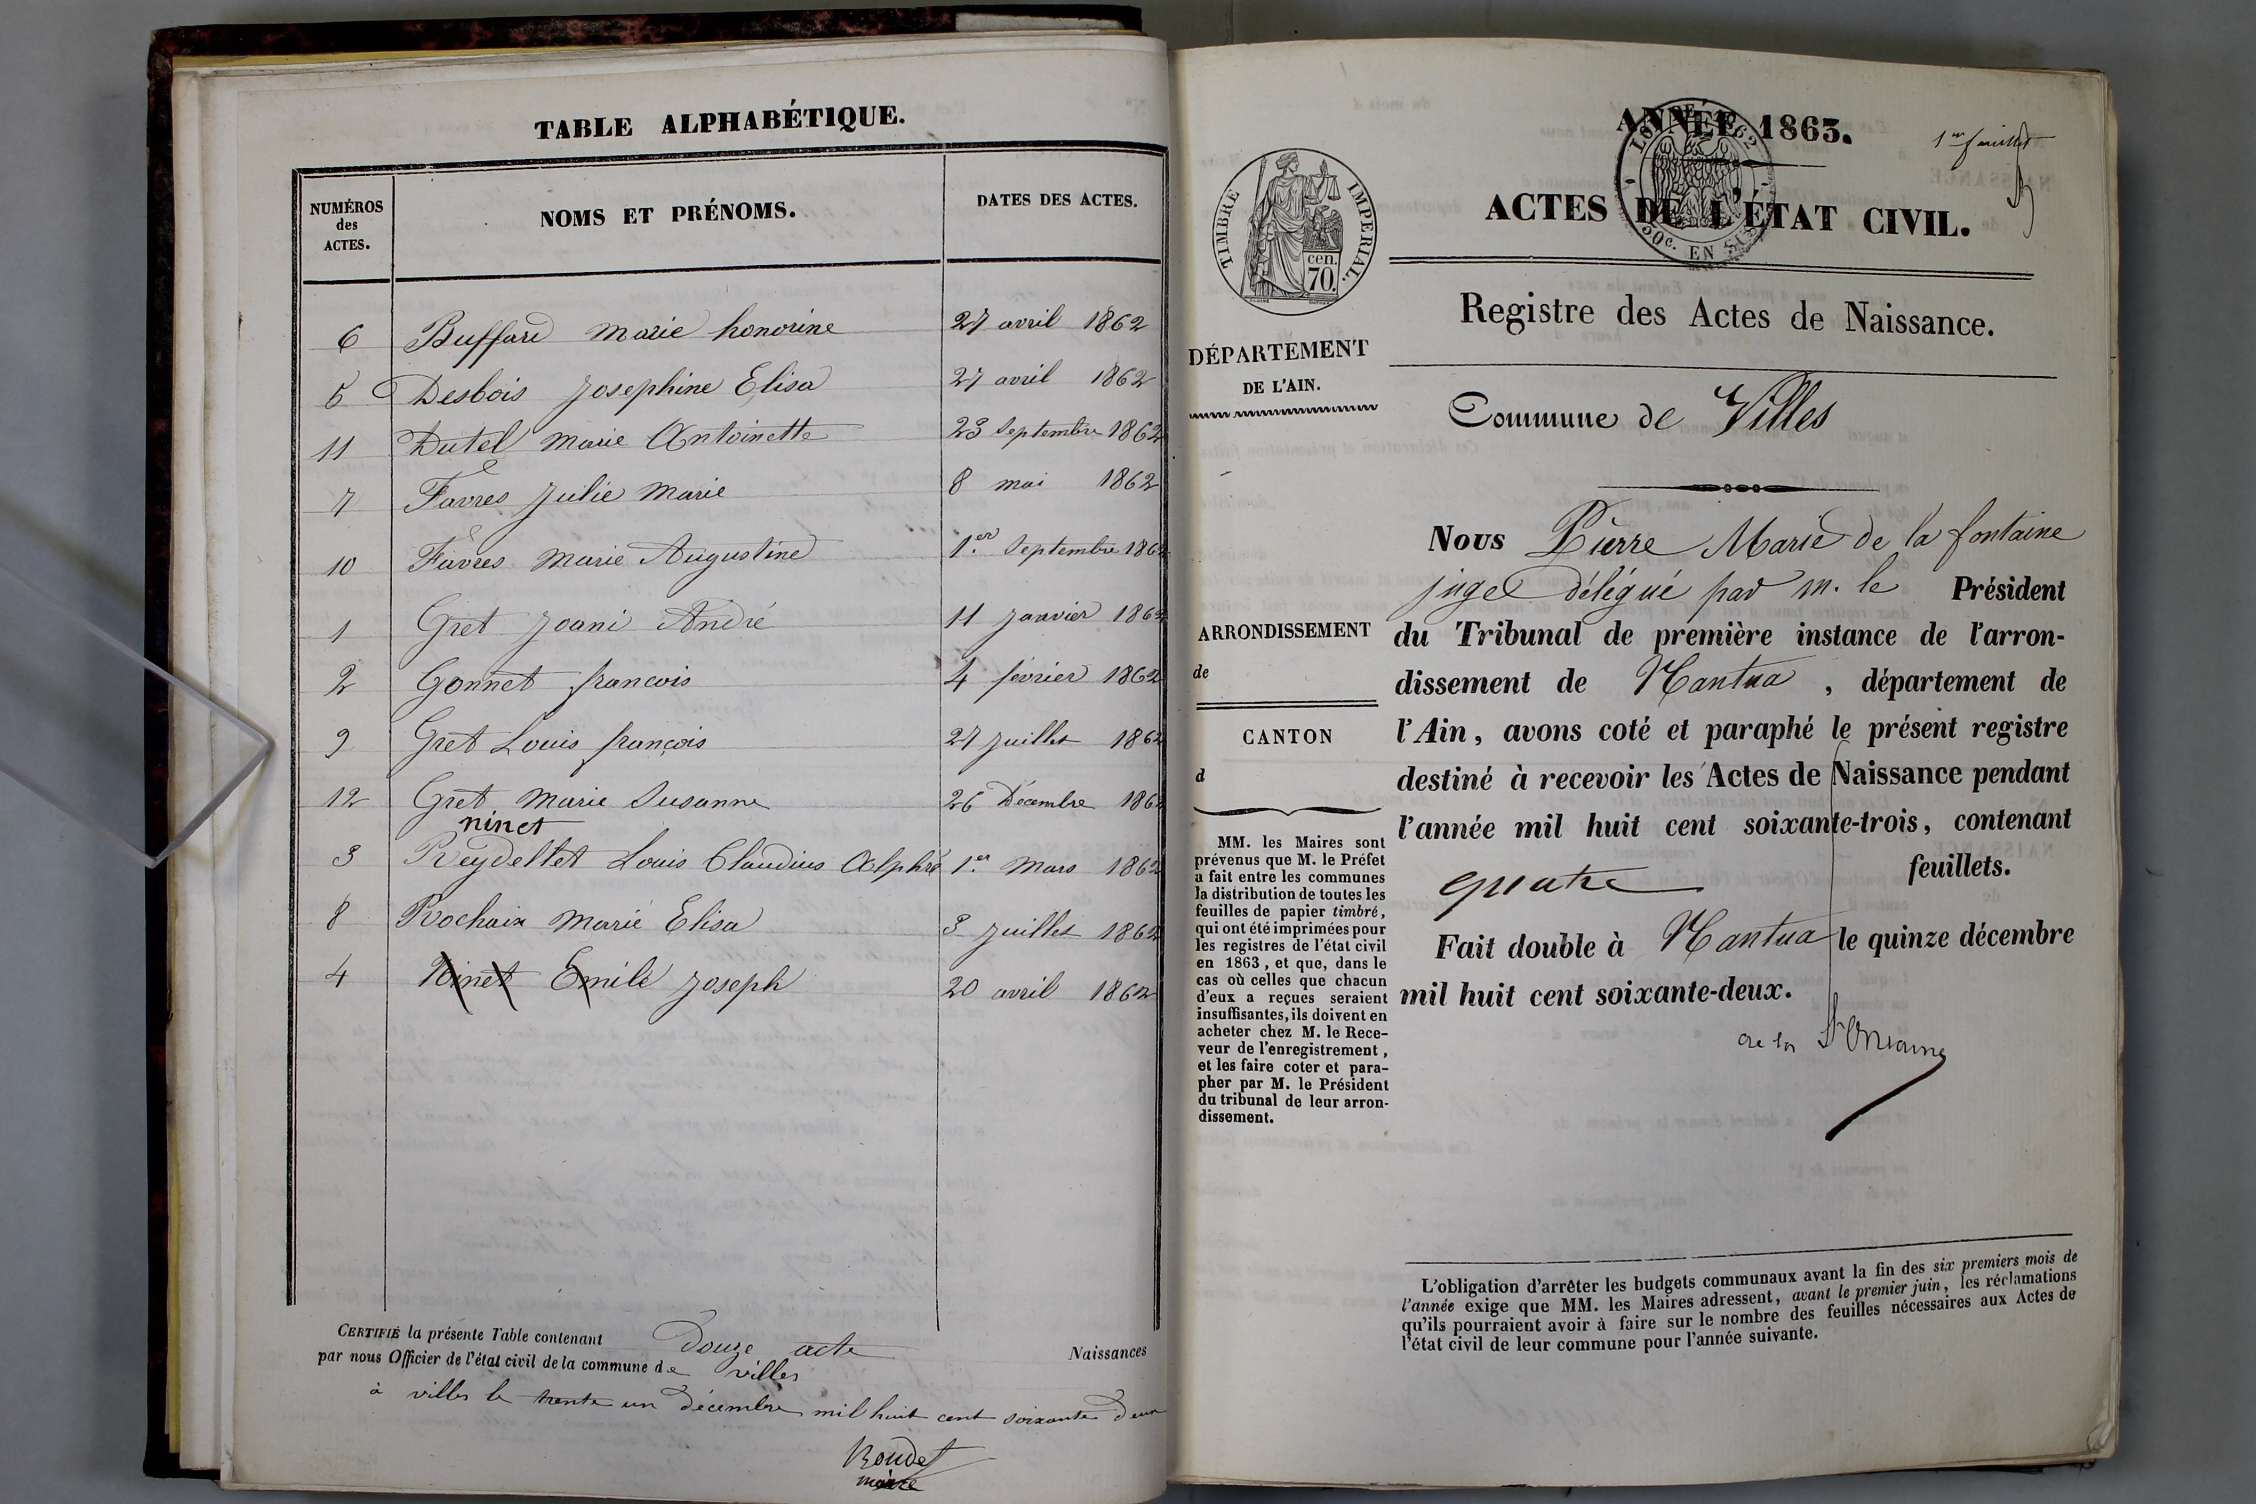 TABLE ALPHABÉTIQUE.
NUMÉROS des ACTES. NOMS ET PRÉNOMS. DATES DES ACTES.
6 Buffard Marie honorine 27 avril 1862
5 Desbois Josephine Elisa 27 avril 1862
11 Dutel Marie Antoinette 23 Septembre 1862
7 Favres Julie Marie 8 mai 1862
10 Favres Marie Augustine 1.er Septembre 1862
1 Gret Joani André 11 Janvier 1862
2 Gonnet francois 4 février 1862
9 Gret Louis françois 27 Juillet 1862
12 Gret Marie Susanne 26 Décembre 1862
ninet
3 Reydellet Louis Claudius Alphré 1.er Mars 1862
8 Rochaix Marie Elisa 3 Juillet 1862
4 Ninet Emile Joseph 20 avril 1862
CERTIFIÉ la présente Table contenant Douze acte Naissances
par nous Officier de l'état civil de la commune de villes
à villes le trente un décembre mil huit cent soixante deux
Roudet
maire
ANNÉE 1863.
1er feuillet
LOI DE 1862
50c. EN SUS
TIMBRE IMPERIAL.
cen.
70.
ACTES DE L'ÉTAT CIVIL.
Registre des Actes de Naissance.
DÉPARTEMENT
DE L'AIN.
Commune de Villes
Nous Pierre Marie de la fontaine
juge délégué par m. le Président
du Tribunal de première instance de l'arron-
dissement de Nantua, département de
l'Ain, avons coté et paraphé le présent registre
destiné à recevoir les Actes de Naissance pendant
l'année mil huit cent soixante-trois, contenant
quatre feuillets.
Fait double à Nantua le quinze décembre
mil huit cent soixante-deux.
de la fontaine
ARRONDISSEMENT
de
CANTON
d
MM. les Maires sont
prévenus que M. le Préfet
a fait entre les communes
la distribution de toutes les
feuilles de papier timbré,
qui ont été imprimées pour
les registres de l'état civil
en 1863, et que, dans le
cas où celles que chacun
d'eux a reçues seraient
insuffisantes, ils doivent en
acheter chez M. le Rece-
veur de l'enregistrement,
et les faire coter et para-
pher par M. le Président
du tribunal de leur arron-
dissement.
L'obligation d'arrêter les budgets communaux avant la fin des six premiers mois de
l'année exige que MM. les Maires adressent, avant le premier juin, les réclamations
qu'ils pourraient avoir à faire sur le nombre des feuilles nécessaires aux Actes de
l'état civil de leur commune pour l'année suivante.